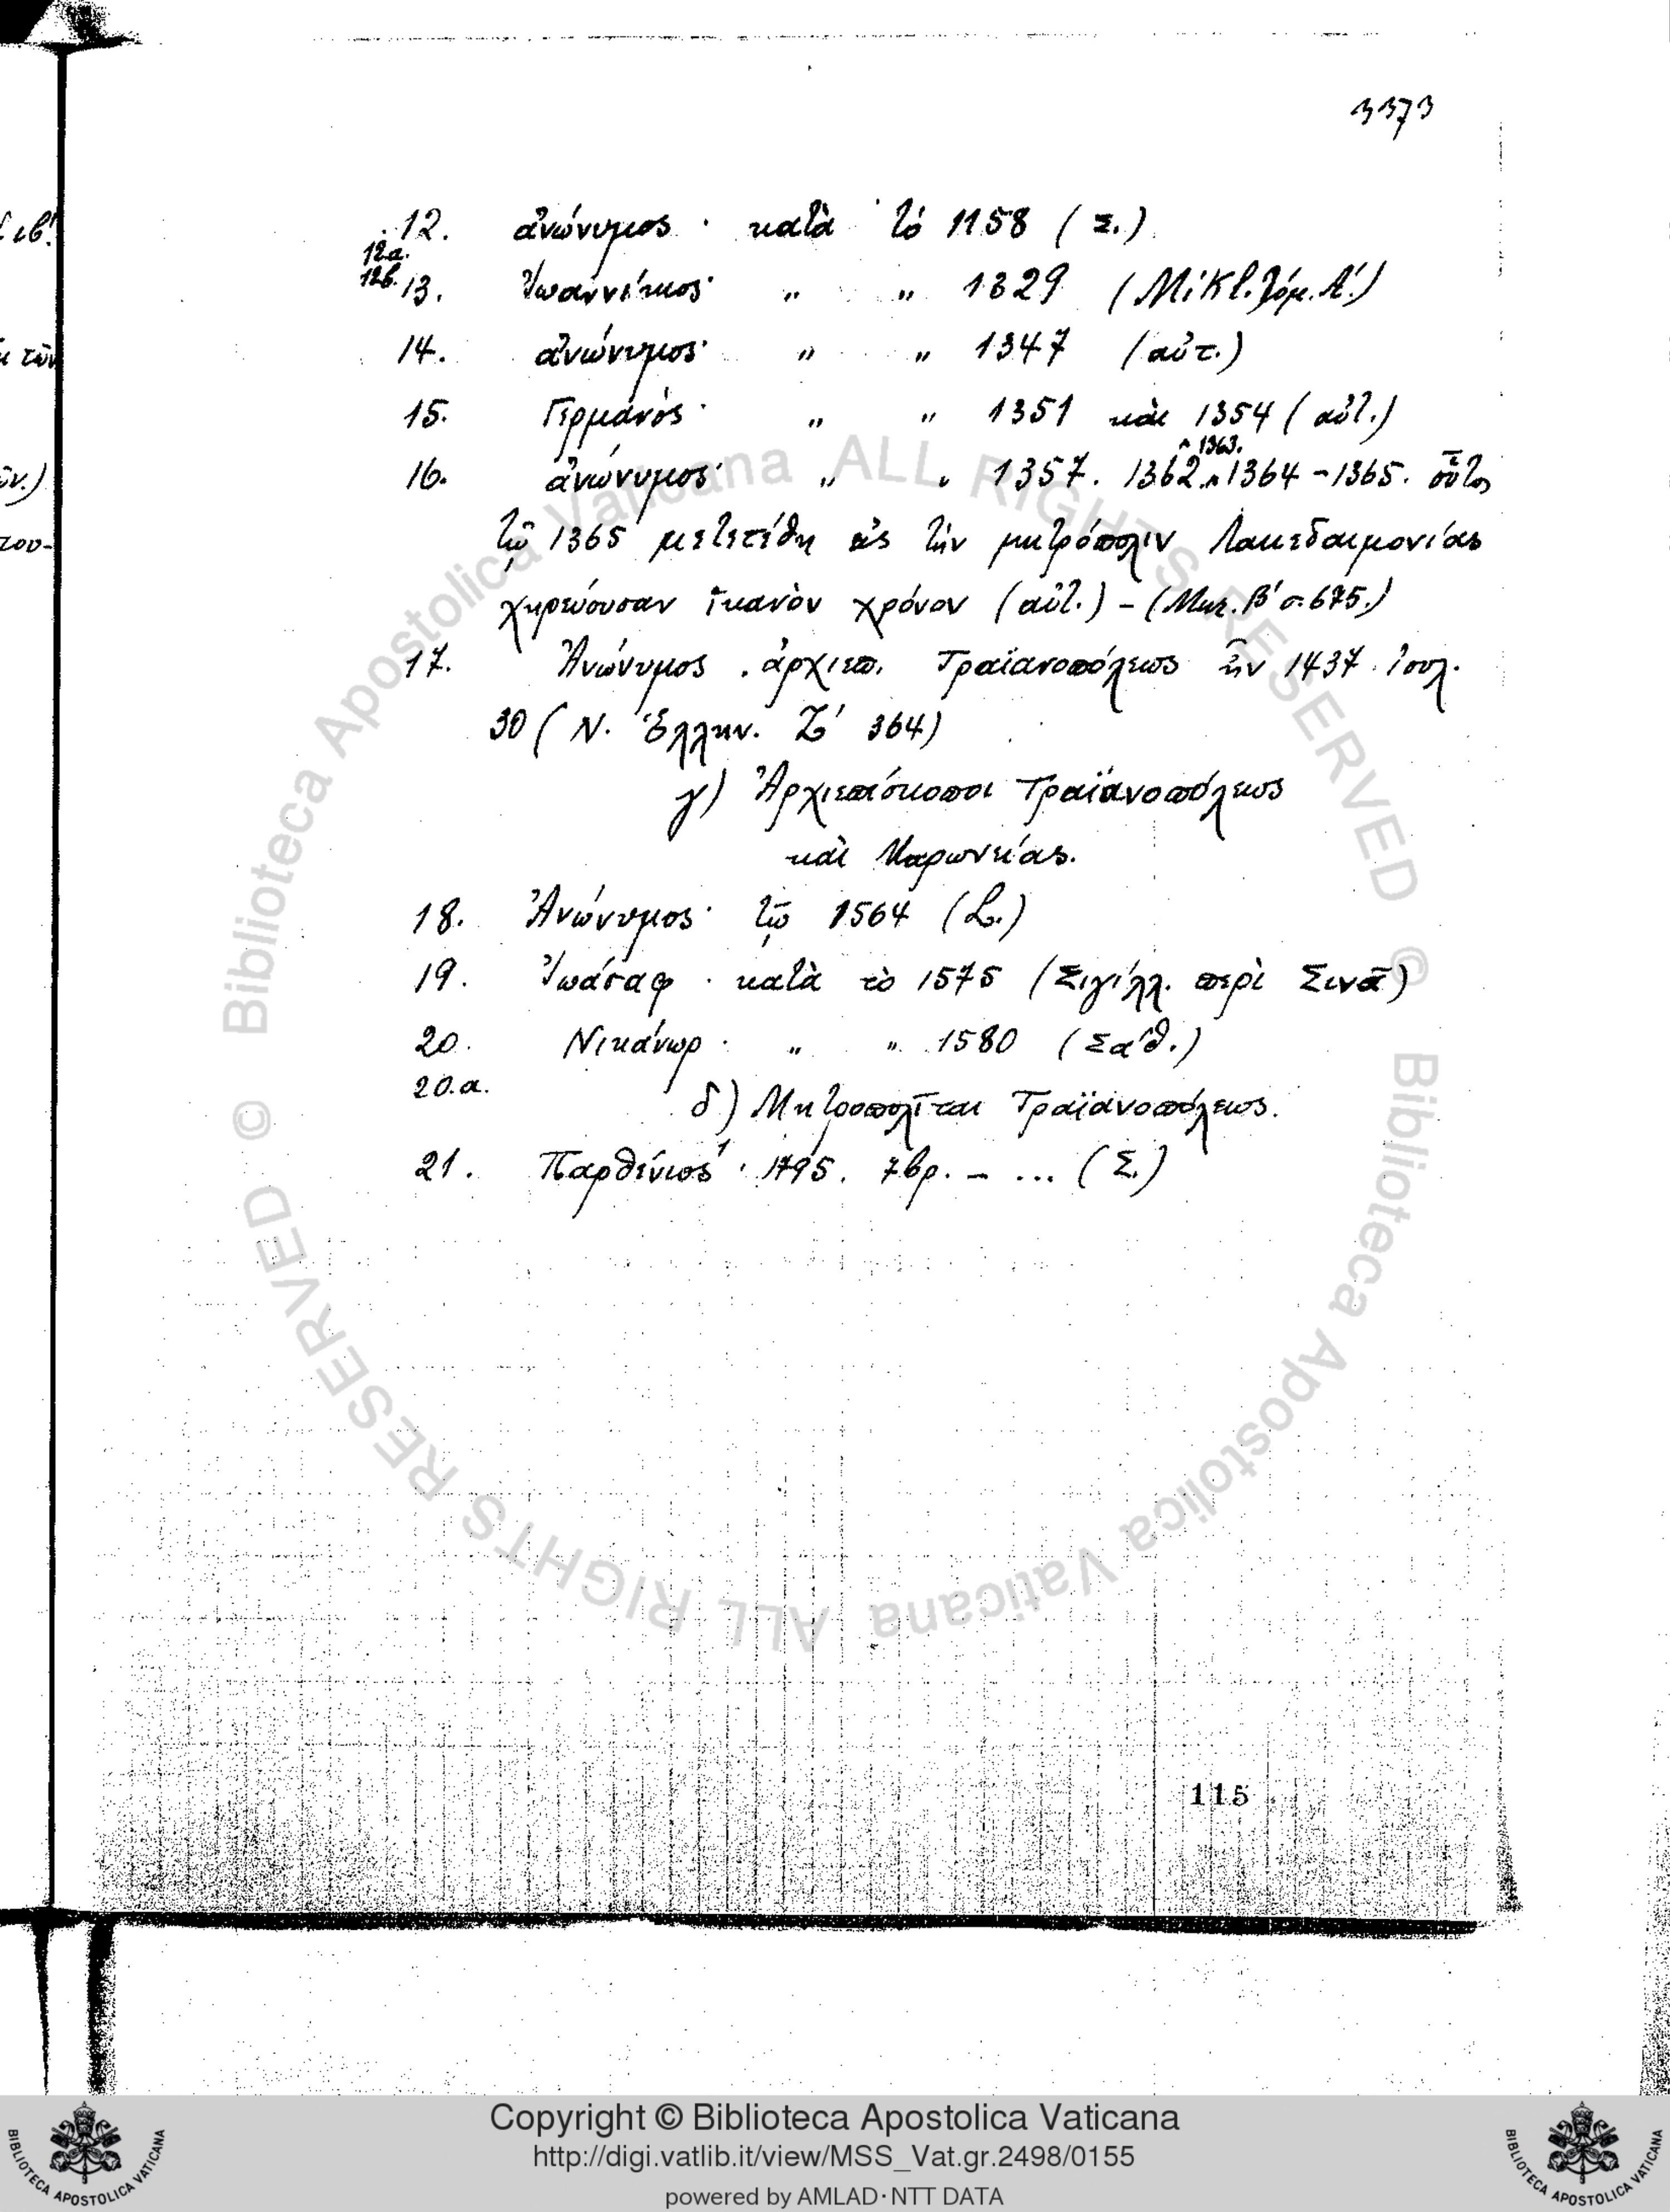 3373
12. ἀνώνυμος · κατὰ τό 1158 (Σ.)
12α.
12β. 13. Ἰωαννίκιος· " " 1329 (Mikl. τόμ. Α΄)
14. ἀνώνυμος· " " 1347 (αὐτ.)
15. Γερμανός· " " 1351 καὶ 1354 (αὐτ.)
^ 1363.
16. ἀνώνυμος· " " 1357. 1362 ^ 1364 - 1365. οὗτος
τῷ 1365 μετετέθη εἰς τὴν μητρόπολιν Λακεδαιμονίας
χηρεύουσαν ἱκανὸν χρόνον (αὐτ.) - (Μητ. β΄ σ. 675.)
17. Ἀνώνυμος . ἀρχιεπ. Τραϊανοπόλεως ἦν 1437 Ἰουλ.
30 (Ν. Ἑλλην. Ζ΄ 364)
γ) Ἀρχιεπίσκοποι Τραϊανοπόλεως
καὶ Μαρωνείας.
18. Ἀνώνυμος· τῷ 1564 (L.)
19. Ἰωάσαφ · κατὰ τὸ 1575 (Σιγίλλ. περὶ Σινᾶ)
20. Νικάνωρ · " " 1580 (Σάθ.)
20.α.
δ) Μητροπολῖται Τραϊανοπόλεως.
21. Παρθένιος · 1795. 7βρ. - ... (Σ.)
115
© Biblioteca Apostolica Vaticana ALL RIGHTS RESERVED
© Biblioteca Apostolica Vaticana ALL RIGHTS RESERVED
Copyright © Biblioteca Apostolica Vaticana
http://digi.vatlib.it/view/MSS_Vat.gr.2498/0155
powered by AMLAD·NTT DATA
BIBLIOTECA APOSTOLICA VATICANA
BIBLIOTECA APOSTOLICA VATICANA